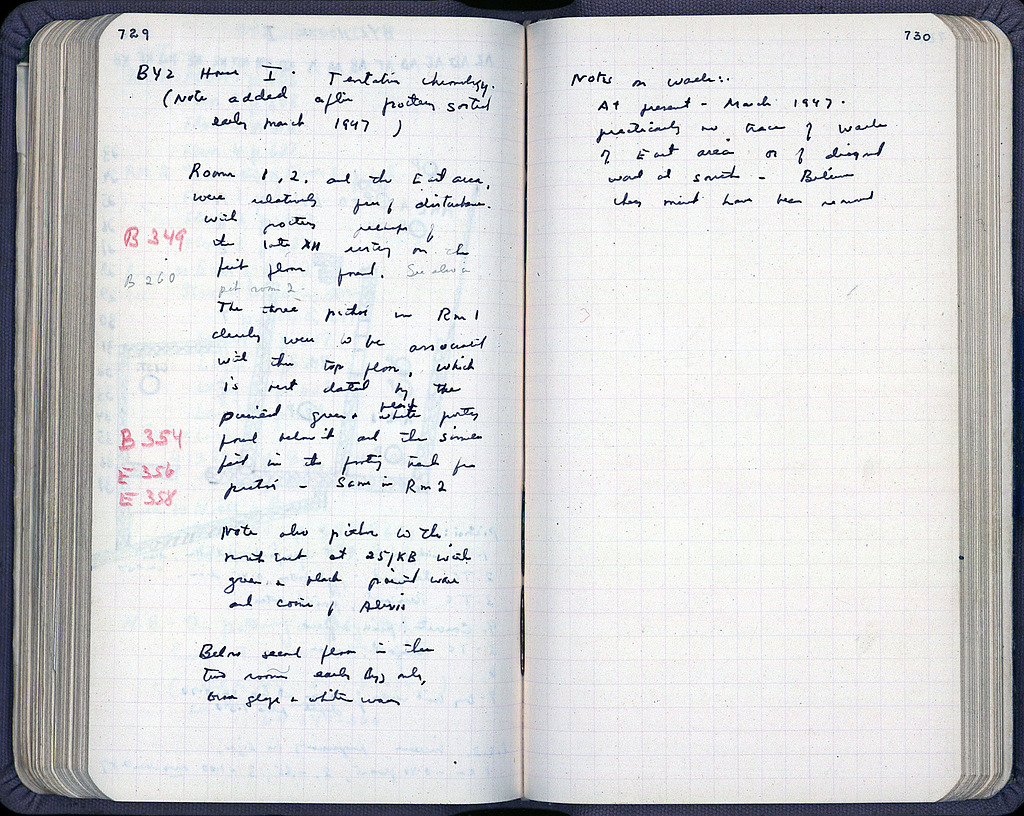 729
BYZ House I. Tentative chronology.
(Note added after pottery sorted
early march 1947)
Rooms 1, 2, and the East area,
were relatively free of disturbance.
with pottery perhaps of
B 349
the late XII resting on the
first floor found. See also in
B 260
pit room 2.
The three pithoi in Rm 1
clearly were to be associated
with the top floor, which
is best dated by the
painted green + black white pottery
B 354
found below it and the similar
E 356
in the for
E 358
pithoi - Same in Rm 2
Note also pithoi to the
north at 25/KB with
green + black painted ware
and coin of Alexis
Below second floor in these
two rooms early Byz only,
glaze + white ware
730
Notes on walls:
At present - March 1947.
practically no trace of walls
of East area or of diagonal
wall at south - Believe
they must have been removed